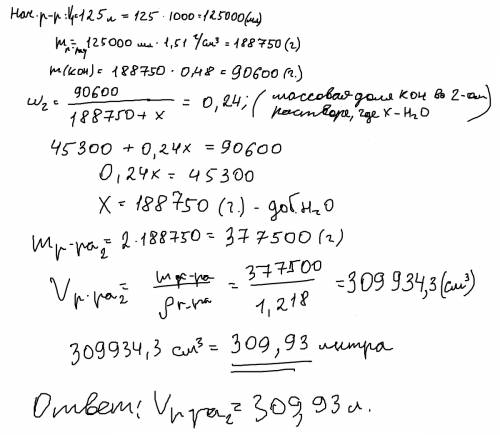 Нач. р-р: V₁ = 125 л = 125 · 1000 = 125000 (мл)
m р-ра₁ = 125000 мл · 1,51 г/см³ = 188750 (г)
m(KOH) = 188750 · 0,48 = 90600 (г.)
ω₂ = 90600 / (188750 + x) = 0,24; (массовая доля KOH во 2-ом растворе, где x - H₂O
45300 + 0,24x = 90600
0,24x = 45300
X = 188750 (г.) - доб. H₂O
m р-ра₂ = 2 · 188750 = 377500 (г)
V р-ра₂ = m р-ра / ρ р-ра = 377500 / 1,218 = 309 934,3 (см³)
309934,3 см³ = 309,93 литра
Ответ: V р-ра₂ = 309,93 л.